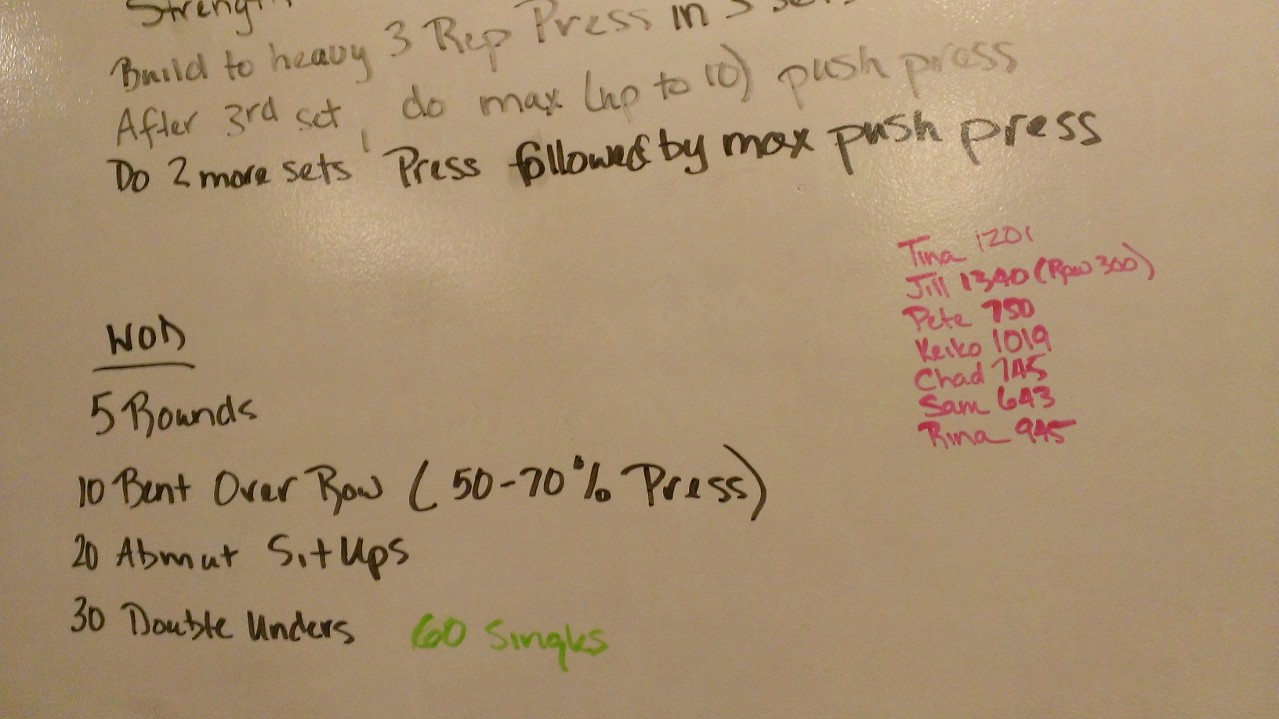 Strength
Build to heavy 3 Rep Press in 3 sets
After 3rd set, do max (up to 10) push press
Do 2 more sets Press followed by max push press
Tina 1201
Jill 1340 (Row 300)
Pete 750
Keiko 1019
Chad 745
Sam 643
Rina 945
WOD
5 Rounds
10 Bent Over Row (50-70% Press)
20 Abmat Sit Ups
30 Double Unders 60 Singles